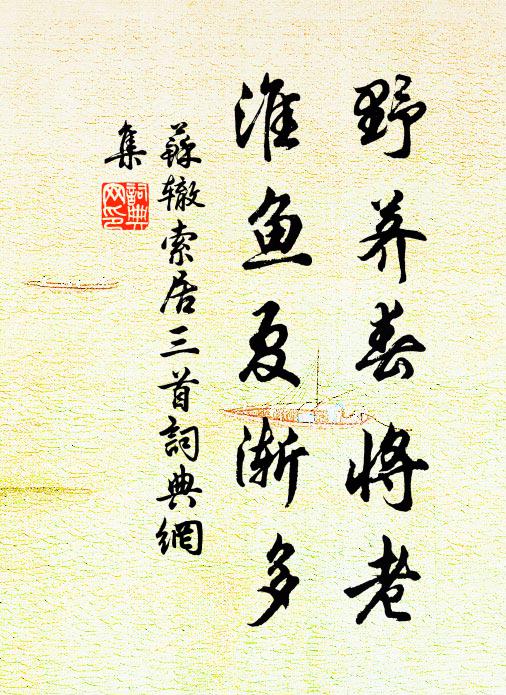 野荠春将老
淮鱼夏渐多
蘇辙索居三首詞典網
集
詞典
网印